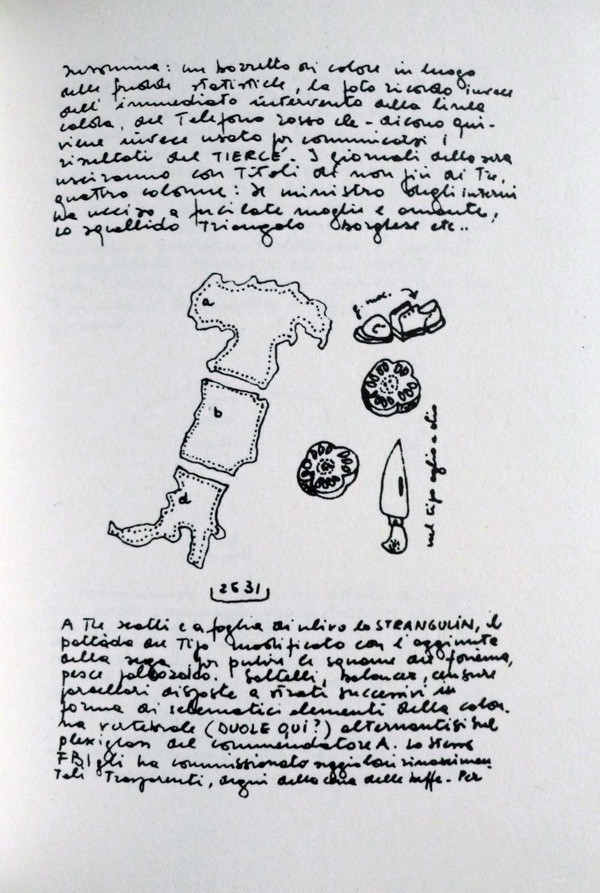 Insomma: un borretto di colore in luogo
delle fredde statistiche, la foto ricordo invece
dell'immediato intervento della linea
calda, del Telefono rosso che - dicono qui -
viene invece usato per comunicarsi i
risultati del TIERCÉ. I giornali della sera
usciranno con Titoli di non più di Tre,
quattro colonne: Il ministro degli interni
ha ucciso a fucilate moglie e amante,
lo squallido Triangolo Borghese etc..
a
b
d
nel tipo aglio e olio
2631
A Tre scatti e a foglia di ulivo lo STRANGULÌN, il
pattada del Tipo modificato con l'aggiunta
della sega per pulire le squame del
pesce palcosaldo. Saltelli, balances, censure
disposte a strati successivi in
forma di schematici elementi della colon-
na vertebrale (DUOLE QUI?) alternantisi sul
plexiglas del commendatore A. Lo stesso
FBI gli ha commissionato
Tali Trasparenti, degni della cena delle beffe. Per